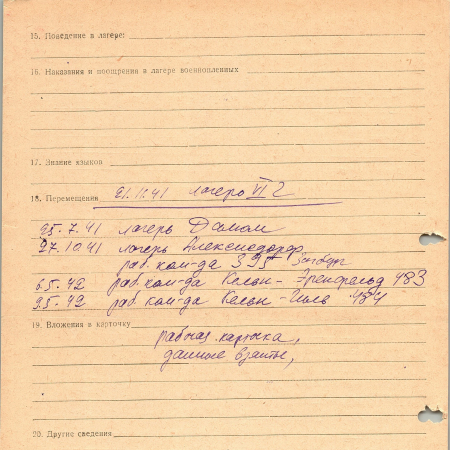 15. Поведение в лагере:
16. Наказания и поощрения в лагере военнопленных
17. Знание языков
18. Перемещения 21.11.41 лагерь VI G
25.7.41 лагерь
27.10.41 лагерь
раб. ком-да 395
6.5.42 раб. ком-да Кельн-Эренфельд 483
9.5.42 раб. ком-да Кельн- 484
19. Вложения в карточку
рабочая карточка,
данные взяты,
20. Другие сведения